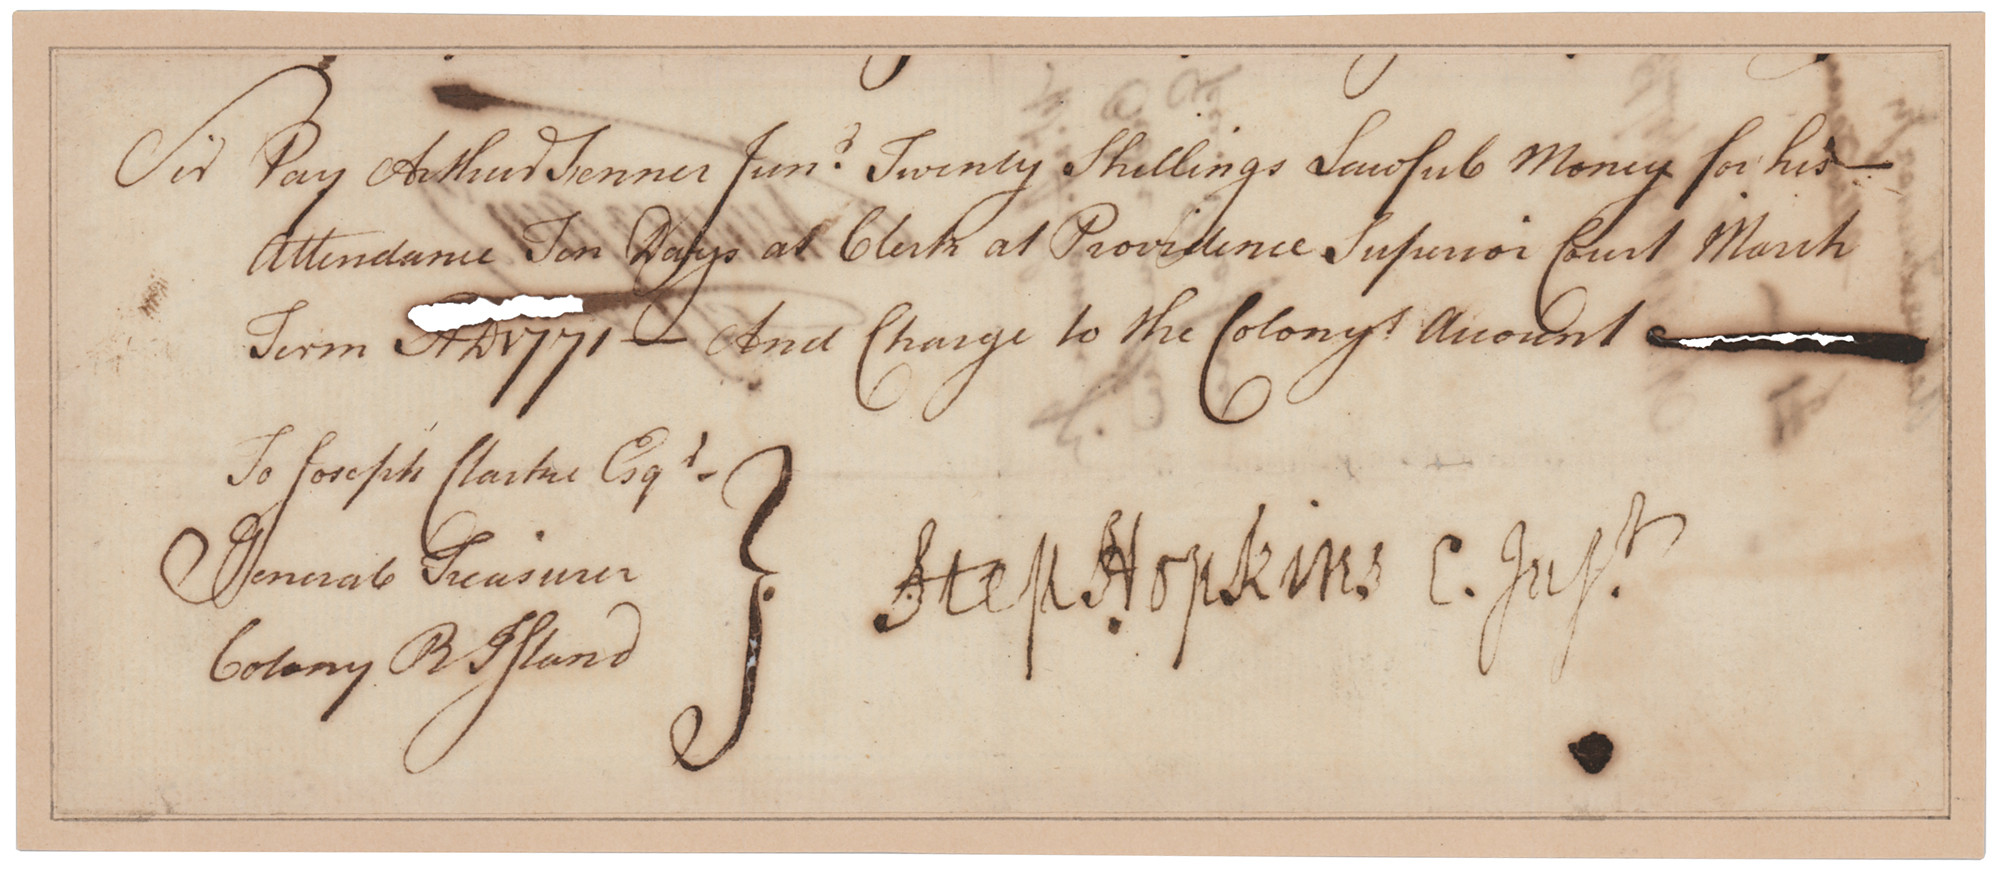 Sir Pay Arthur Fenner Junr. Twenty Shillings Lawfull Money for his
Attendance Ten Days as Clerk at Providence Superior Court March
Term AD 1771 — And Charge to the Colonys Account
To Joseph Clarke Esqr.
General Treasurer
Colony R Island
Step Hopkins C. Just.